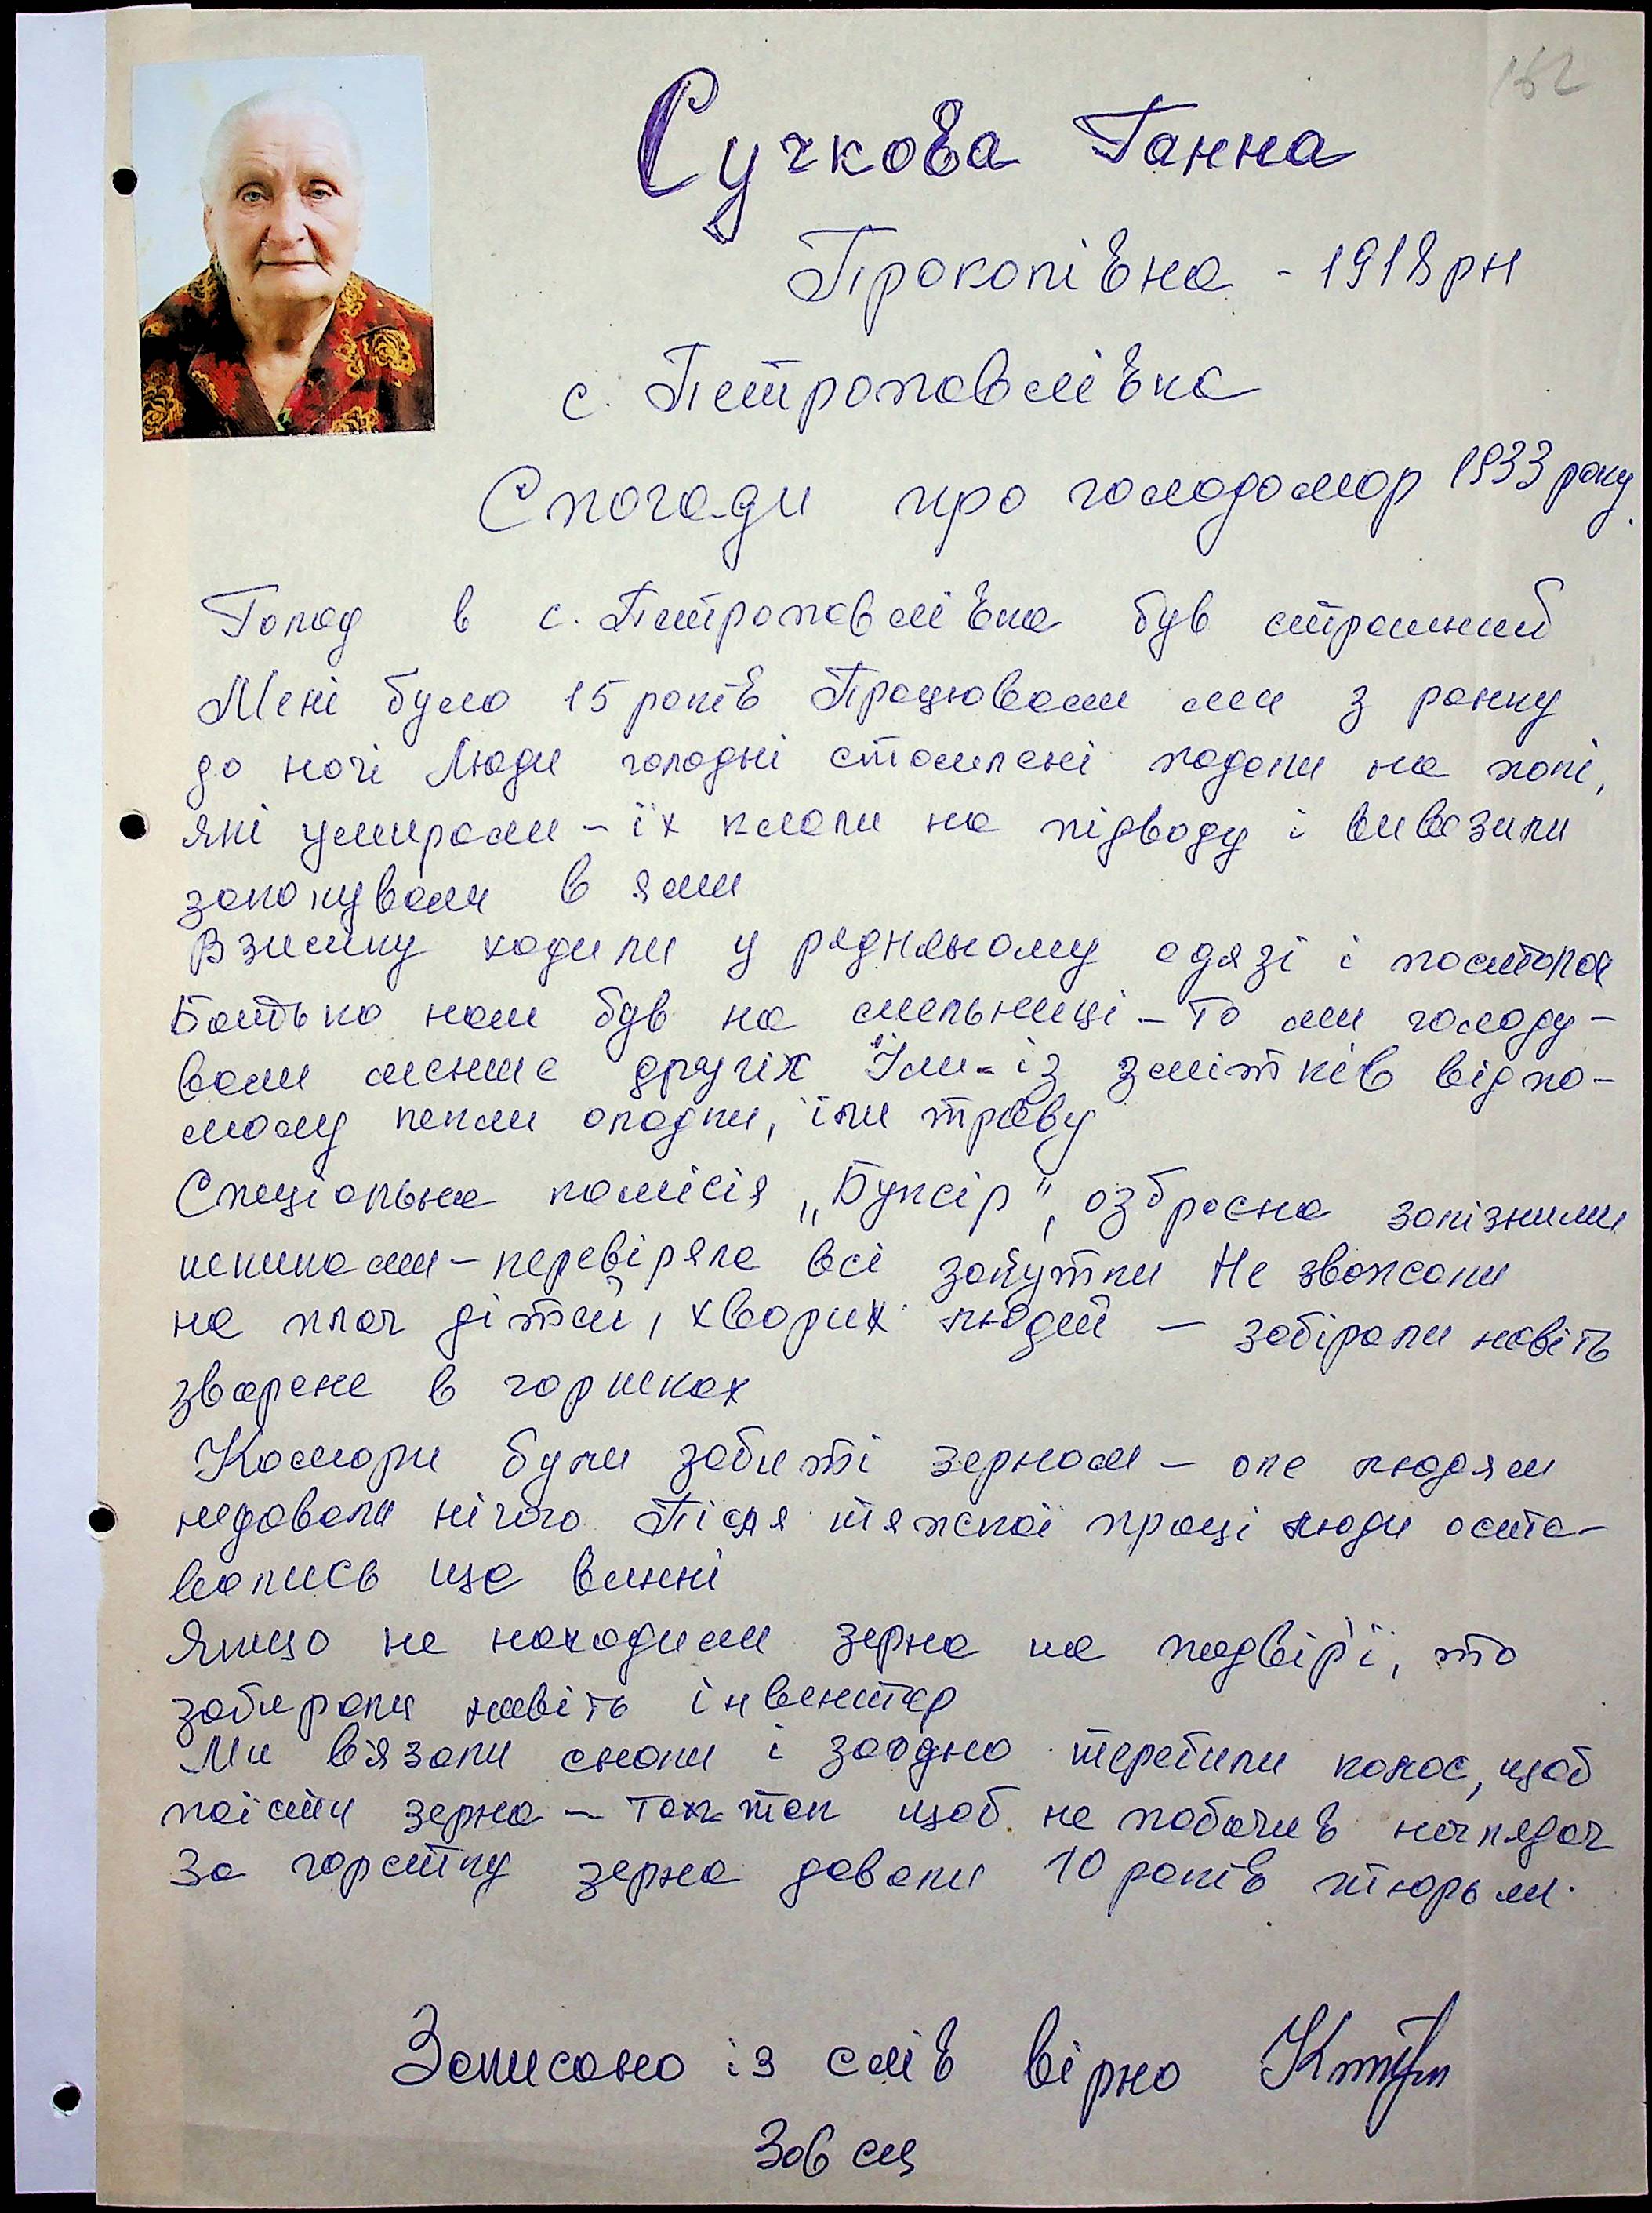 162
Сучкова Ганна
Прокопівна - 1918 рн
с. Петропавлівка
Спогади про голодомор 1933 року.
Голод в с. Петропавлівка був страшний
Мені було 15 років Працювали ми з ранку
до ночі Люди голодні стомлені падали на полі,
які умирали - їх клали на підводу і вивозили
закопували в ями
Взимку ходили у рядняному одязі і постолах
Батько наш був на мельниці - то ми голоду-
вали менше других Їли - із змітків відпо-
молу пекли оладки, їли траву
Спеціальна комісія „Буксір", озброєна залізними
шпиками - перевіряла всі закутки Не зважали
на плач дітей, хворих людей - забірали навіть
зварене в горшках
Комори були забиті зерном - але людям
недавали нічого Після тяжкої праці люди оста-
вались ще винні
Якщо не находили зерна на подвір'ї, то
забирали навіть інвентар
Ми в'язали снопи і заодно теребили колос, щоб
поїсти зерна - так щоб не побачив наглядач
За горстку зерна давали 10 років тюрьми.
Записано із слів вірно
Зав сц